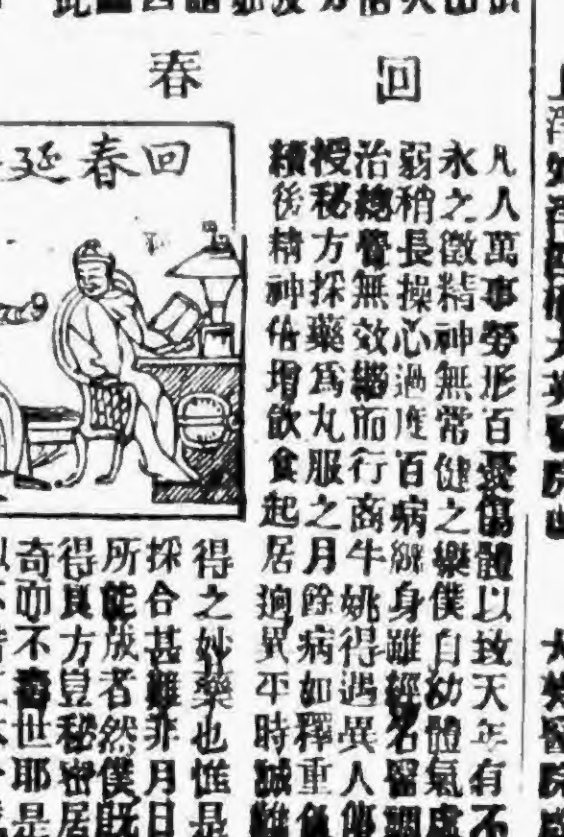 回春
凡人萬事勞形百憂傷體以致天年有不
永之徵精神無常健之樂僕自幼體氣虛
弱稍長操心過度百病纏身雖經名醫調
治總覺無效繼而行商牛姚得遇異人傳
授秘方採藥爲丸服之月餘病如釋重負
續後精神倍增飲食起居逈異平時誠難
回春延
得之妙藥也惟是
採合甚難非月日
所能成者然僕既
得良方豈秘密居
奇而不壽世耶是